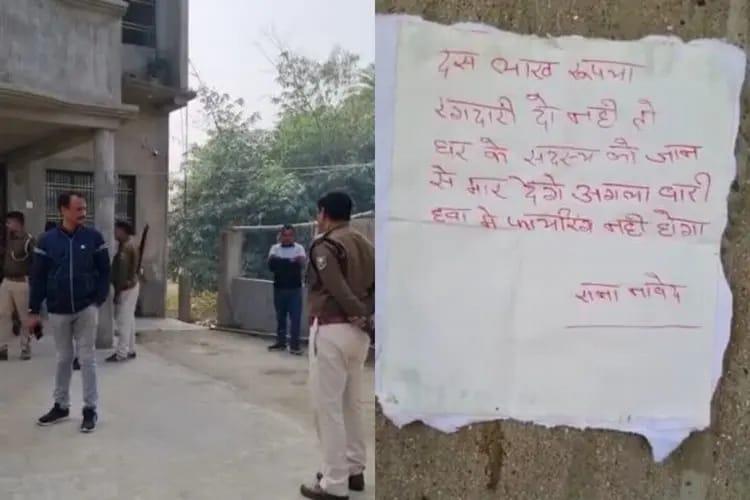 दस लाख रूपया
रंगदारी दो नही तो
घर के सदस्य को जान
से मार देगे अगला बारी
हवा मे फायरिंग नही होगा
राजा नावेद